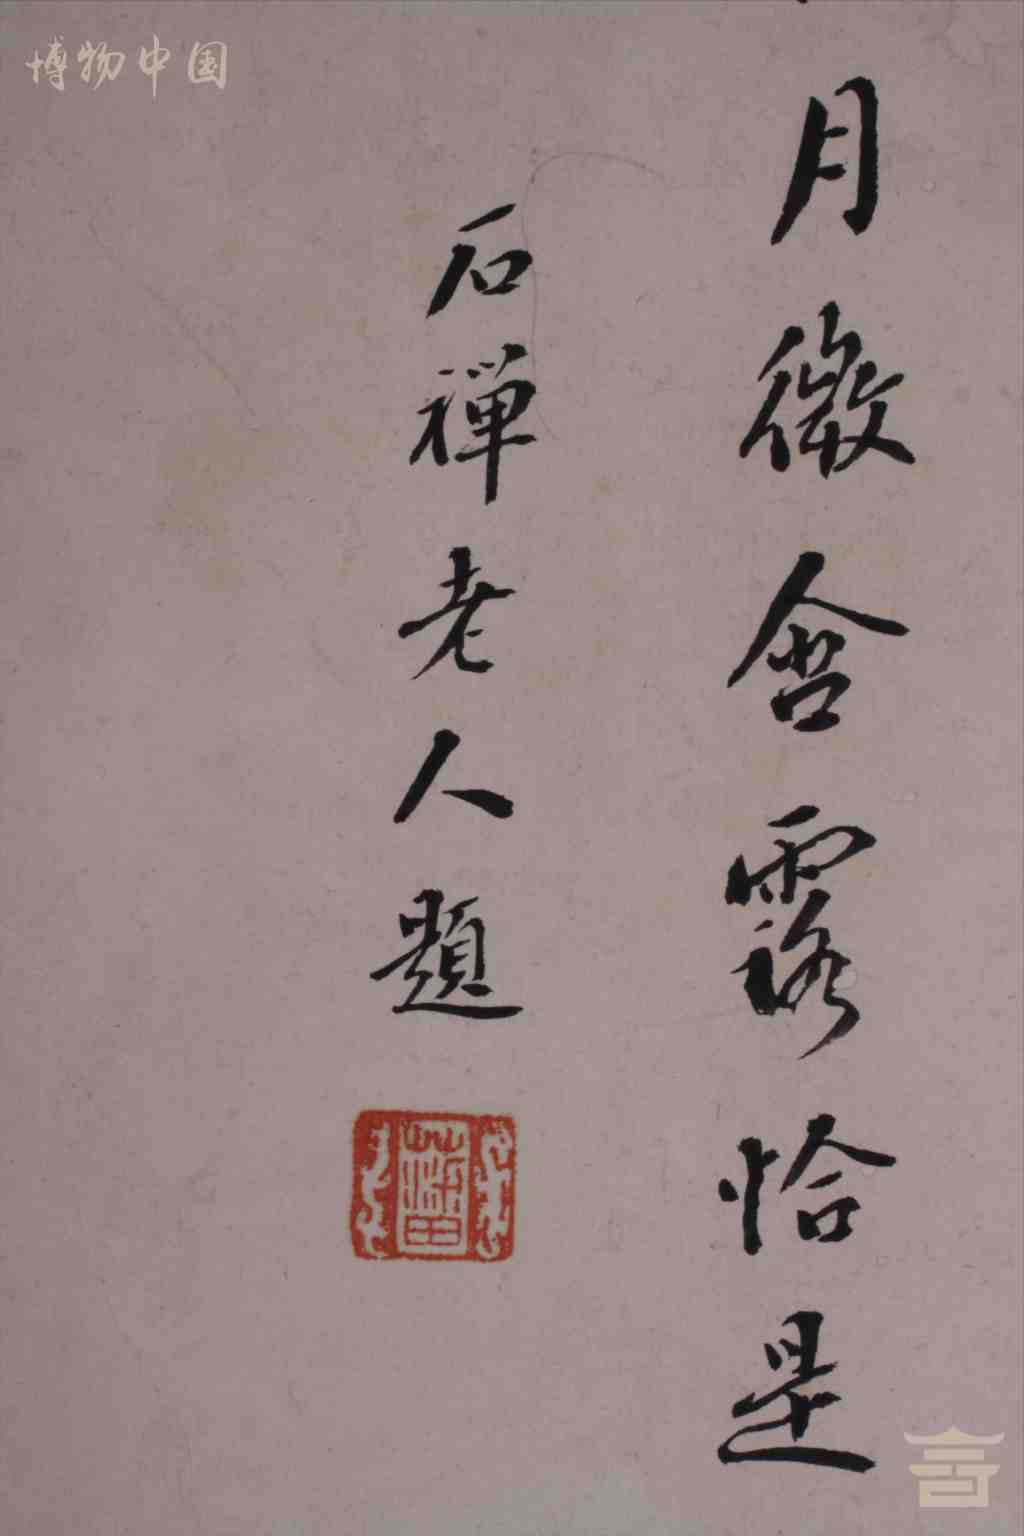 博物中国
月微含露恰是
石禅老人题